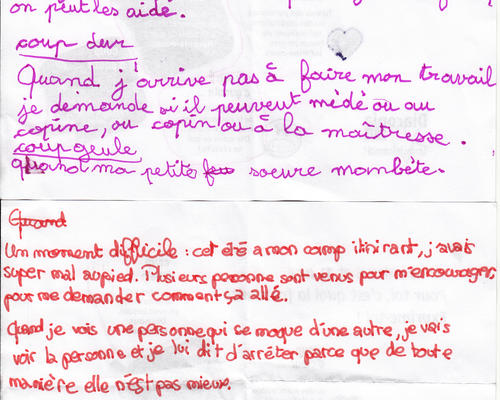 on peut les aidé.
coup dur
Quand j'arrive pas à faire mon travail
je demande si il peuvent m'édé ou au
copine, ou copin ou à la maîtresse.
coup geule
quand ma petite soeure mombête.
Quand
Un moment difficile : cet été a mon camp itinirant, j'avais
super mal au pied. Plusieurs personne sont venus pour m'encourager,
pour me demander comment ça allé.
Quand je vois une personne qui ce moque d'une autre, je vais
voir la personne et je lui dit d'arréter parce que de toute
manière elle n'est pas mieux.